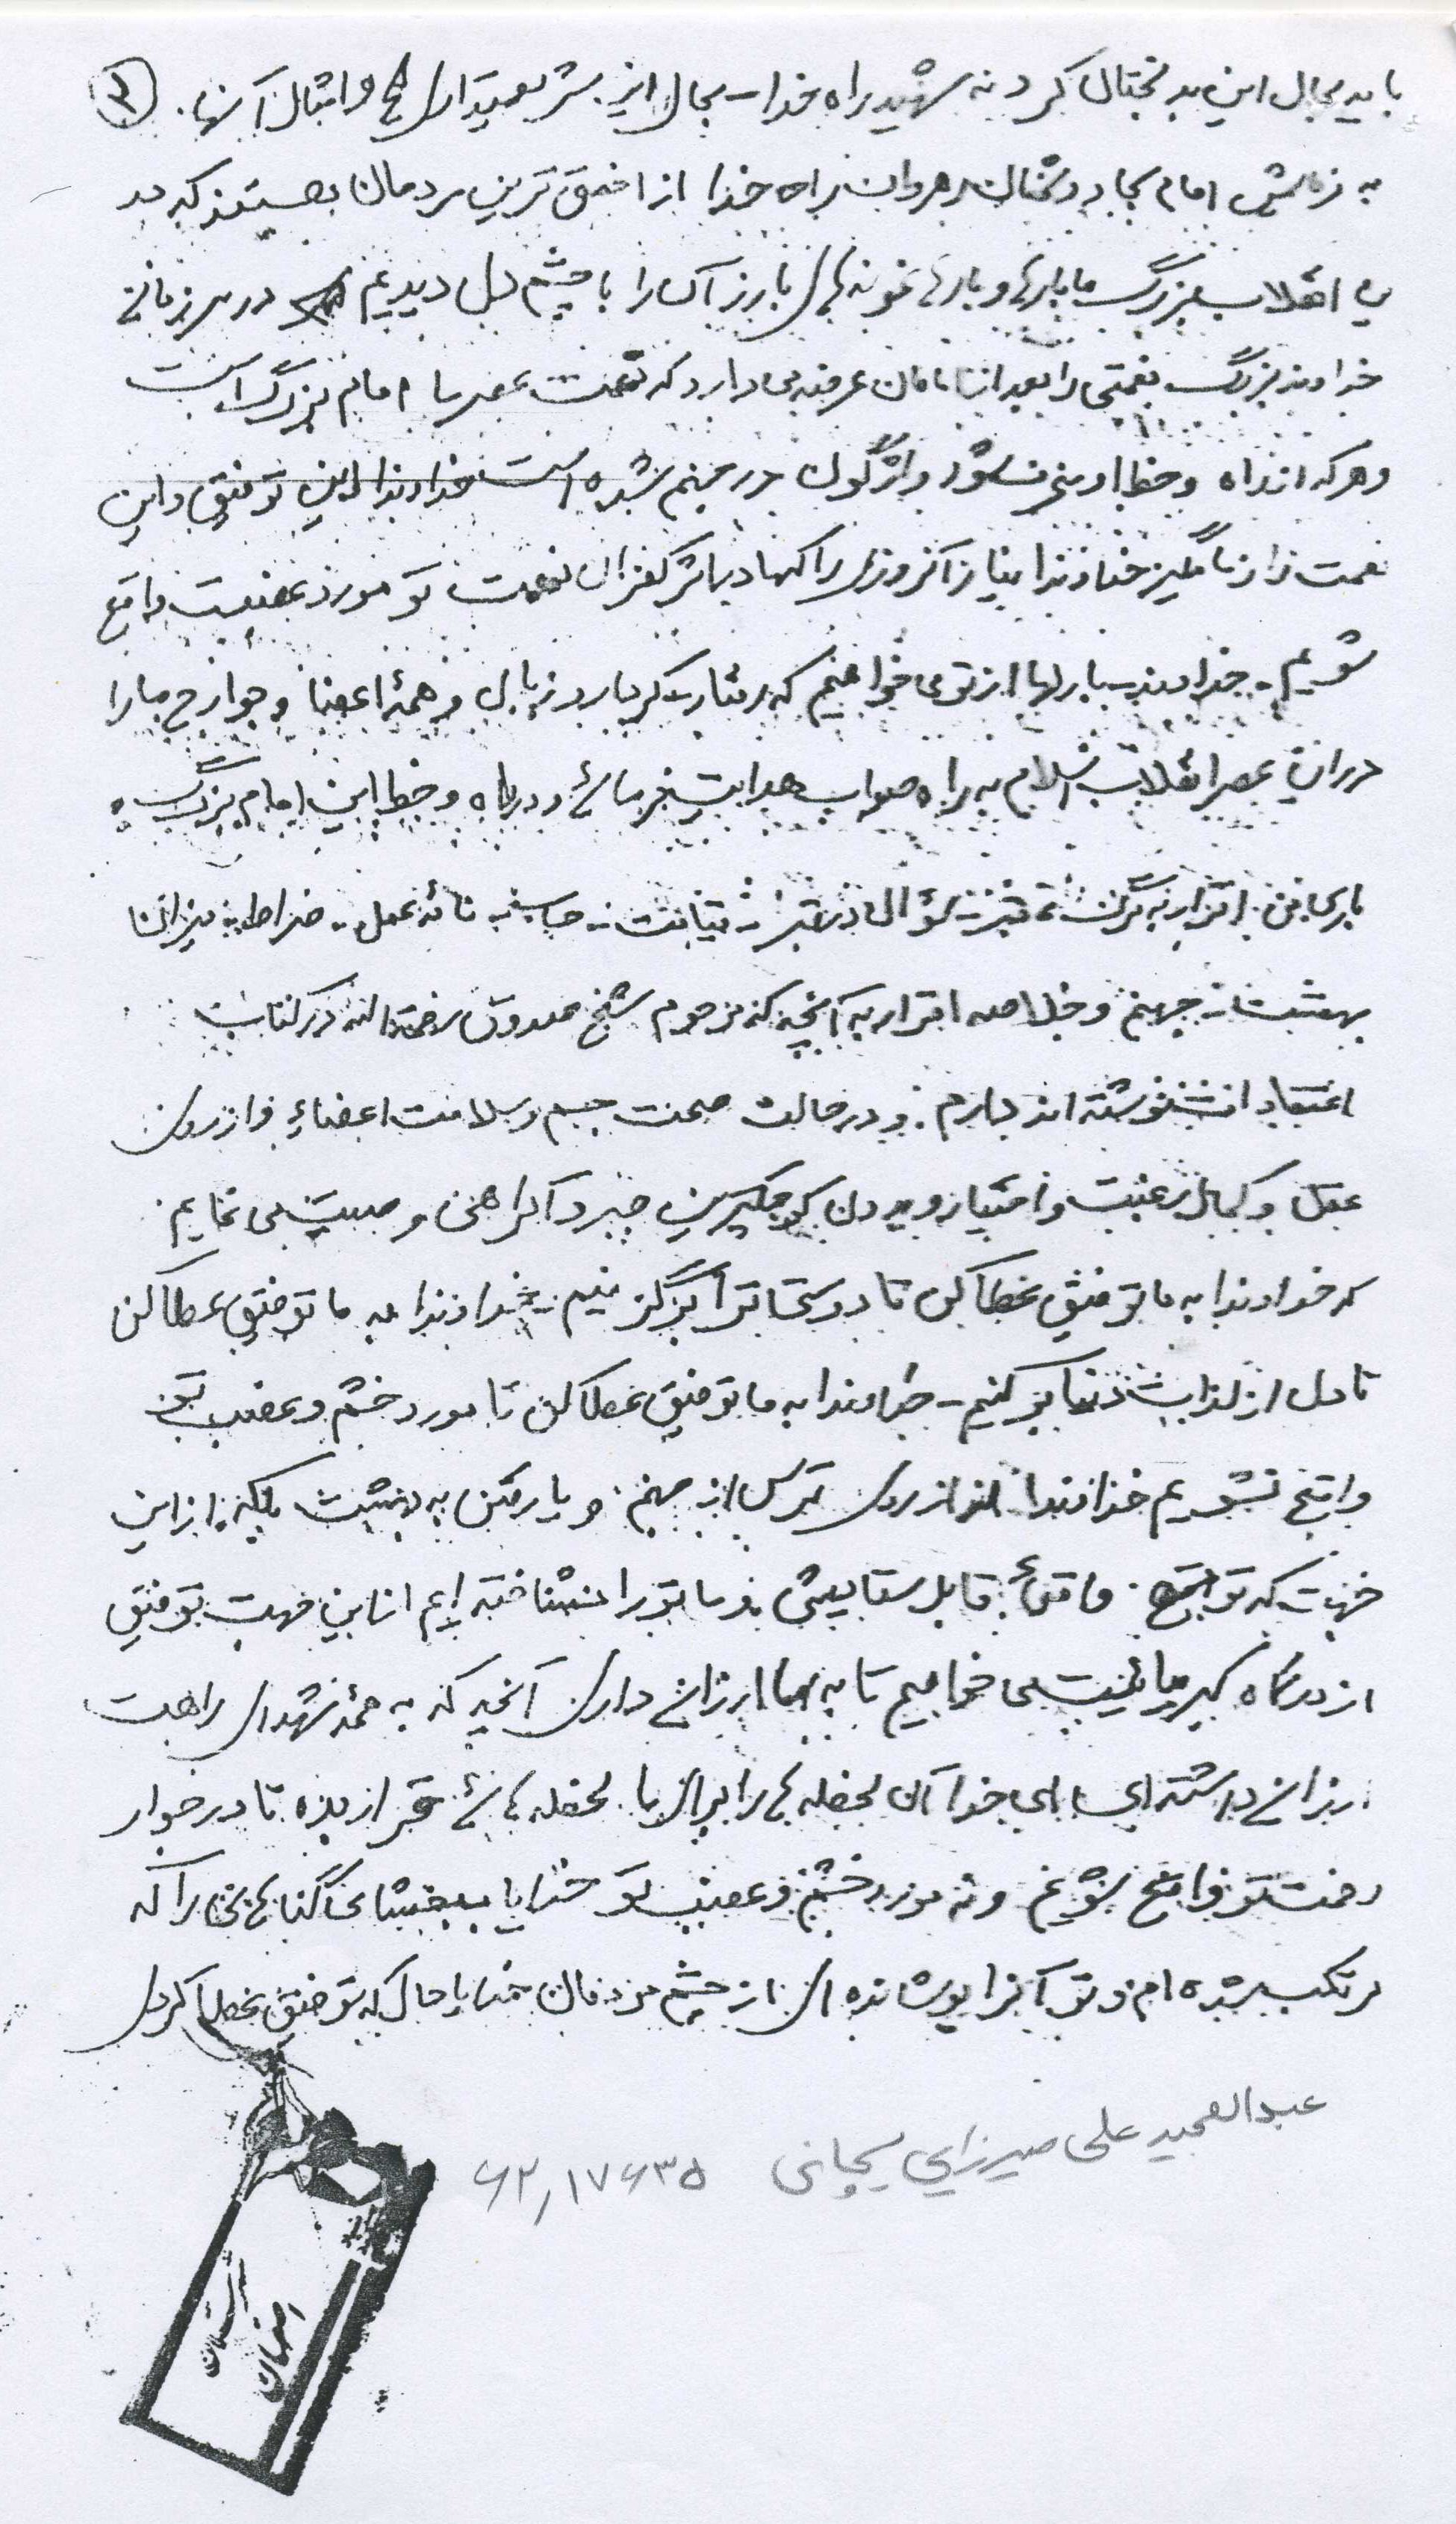 باید بحال این بدبختان کرد نه شهید راه خدا - بحال این شریعتمداری ها و امثال آنها. ۳
به فرمایش امام سجاد دشمنان رهروان راه خدا از احمق ترین مردمان هستند که در
انقلاب بزرگ ما بارها و بارها نمونه های بارز آن را با چشم دل دیدیم در هر زمانی
خداوند بزرگ نعمتی را بعد از امامان عرضه می دارد که نعمت عصر ما امام بزرگ است
و هر که از راه و خط او منحرف شود واژگون در جهنم شده است خداوندا این توفیق و این
نعمت را از ما مگیر خداوندا نیاز آنروزی را که ما در اثر کفران نعمت تو مورد غضبت واقع
شویم - خداوند بارلها از تو می خواهیم که رفتار کردار و زبان و همۀ اعضا و جوارح ما را
در این عصر انقلاب اسلام به راه صواب هدایت بفرمائی و در راه و خط این امام بزرگ
باری من اقرار به مرگ - قبر - سؤال در قبر - قیامت - حساب - نامۀ عمل - صراط - میزان
بهشت - جهنم و خلاصه اقرار به آنچه که مرحوم شیخ صدوق رحمة الله در کتاب
اعتقاداتش نوشته اند دارم. و در حالت صحت جسم و سلامت اعضاء و از روی
عقل و کمال رغبت و اختیار و بدون کوچکترین جبر و اکراهی وصیت می نمایم
که خداوندا به ما توفیق عطا کن تا دوستان ترا برگزینیم - خداوندا به ما توفیق عطا کن
تا دل از لذات دنیا بر کنیم - خداوندا به ما توفیق عطا کن تا مورد خشم و غضب تو
واقع نشویم خداوندا نه از روی ترس از جهنم و یا رفتن به بهشت بلکه از این
جهت که تو واقعاً قابل ستایشی و ما تو را نشناخته ایم از این جهت توفیق
از درگاه کبریائیت می خواهیم تا به ما ارزانی داری آنچه که به همۀ شهدای راهت
ارزانی داشته ای الهی خدا آن لحظه ها را برای ما لحظه هائی قرار بده تا در جوار
رحمت تو واقع شویم و نه مورد خشم و غضب تو خدایا ببخشای گناهانی را که
مرتکب شده ام و تو آنرا پوشانده ای از چشم مردمان خدایا حال که توفیق عطا کردی
عبدالحمید علی میرزایی پیچانی ۶۲٫۱۷۶۳۵
شهرستان
اصفهان